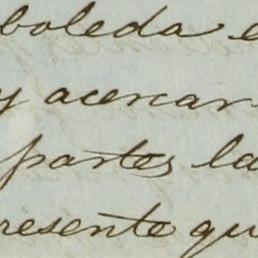 boleda e
y acercar
partes la
resente qu